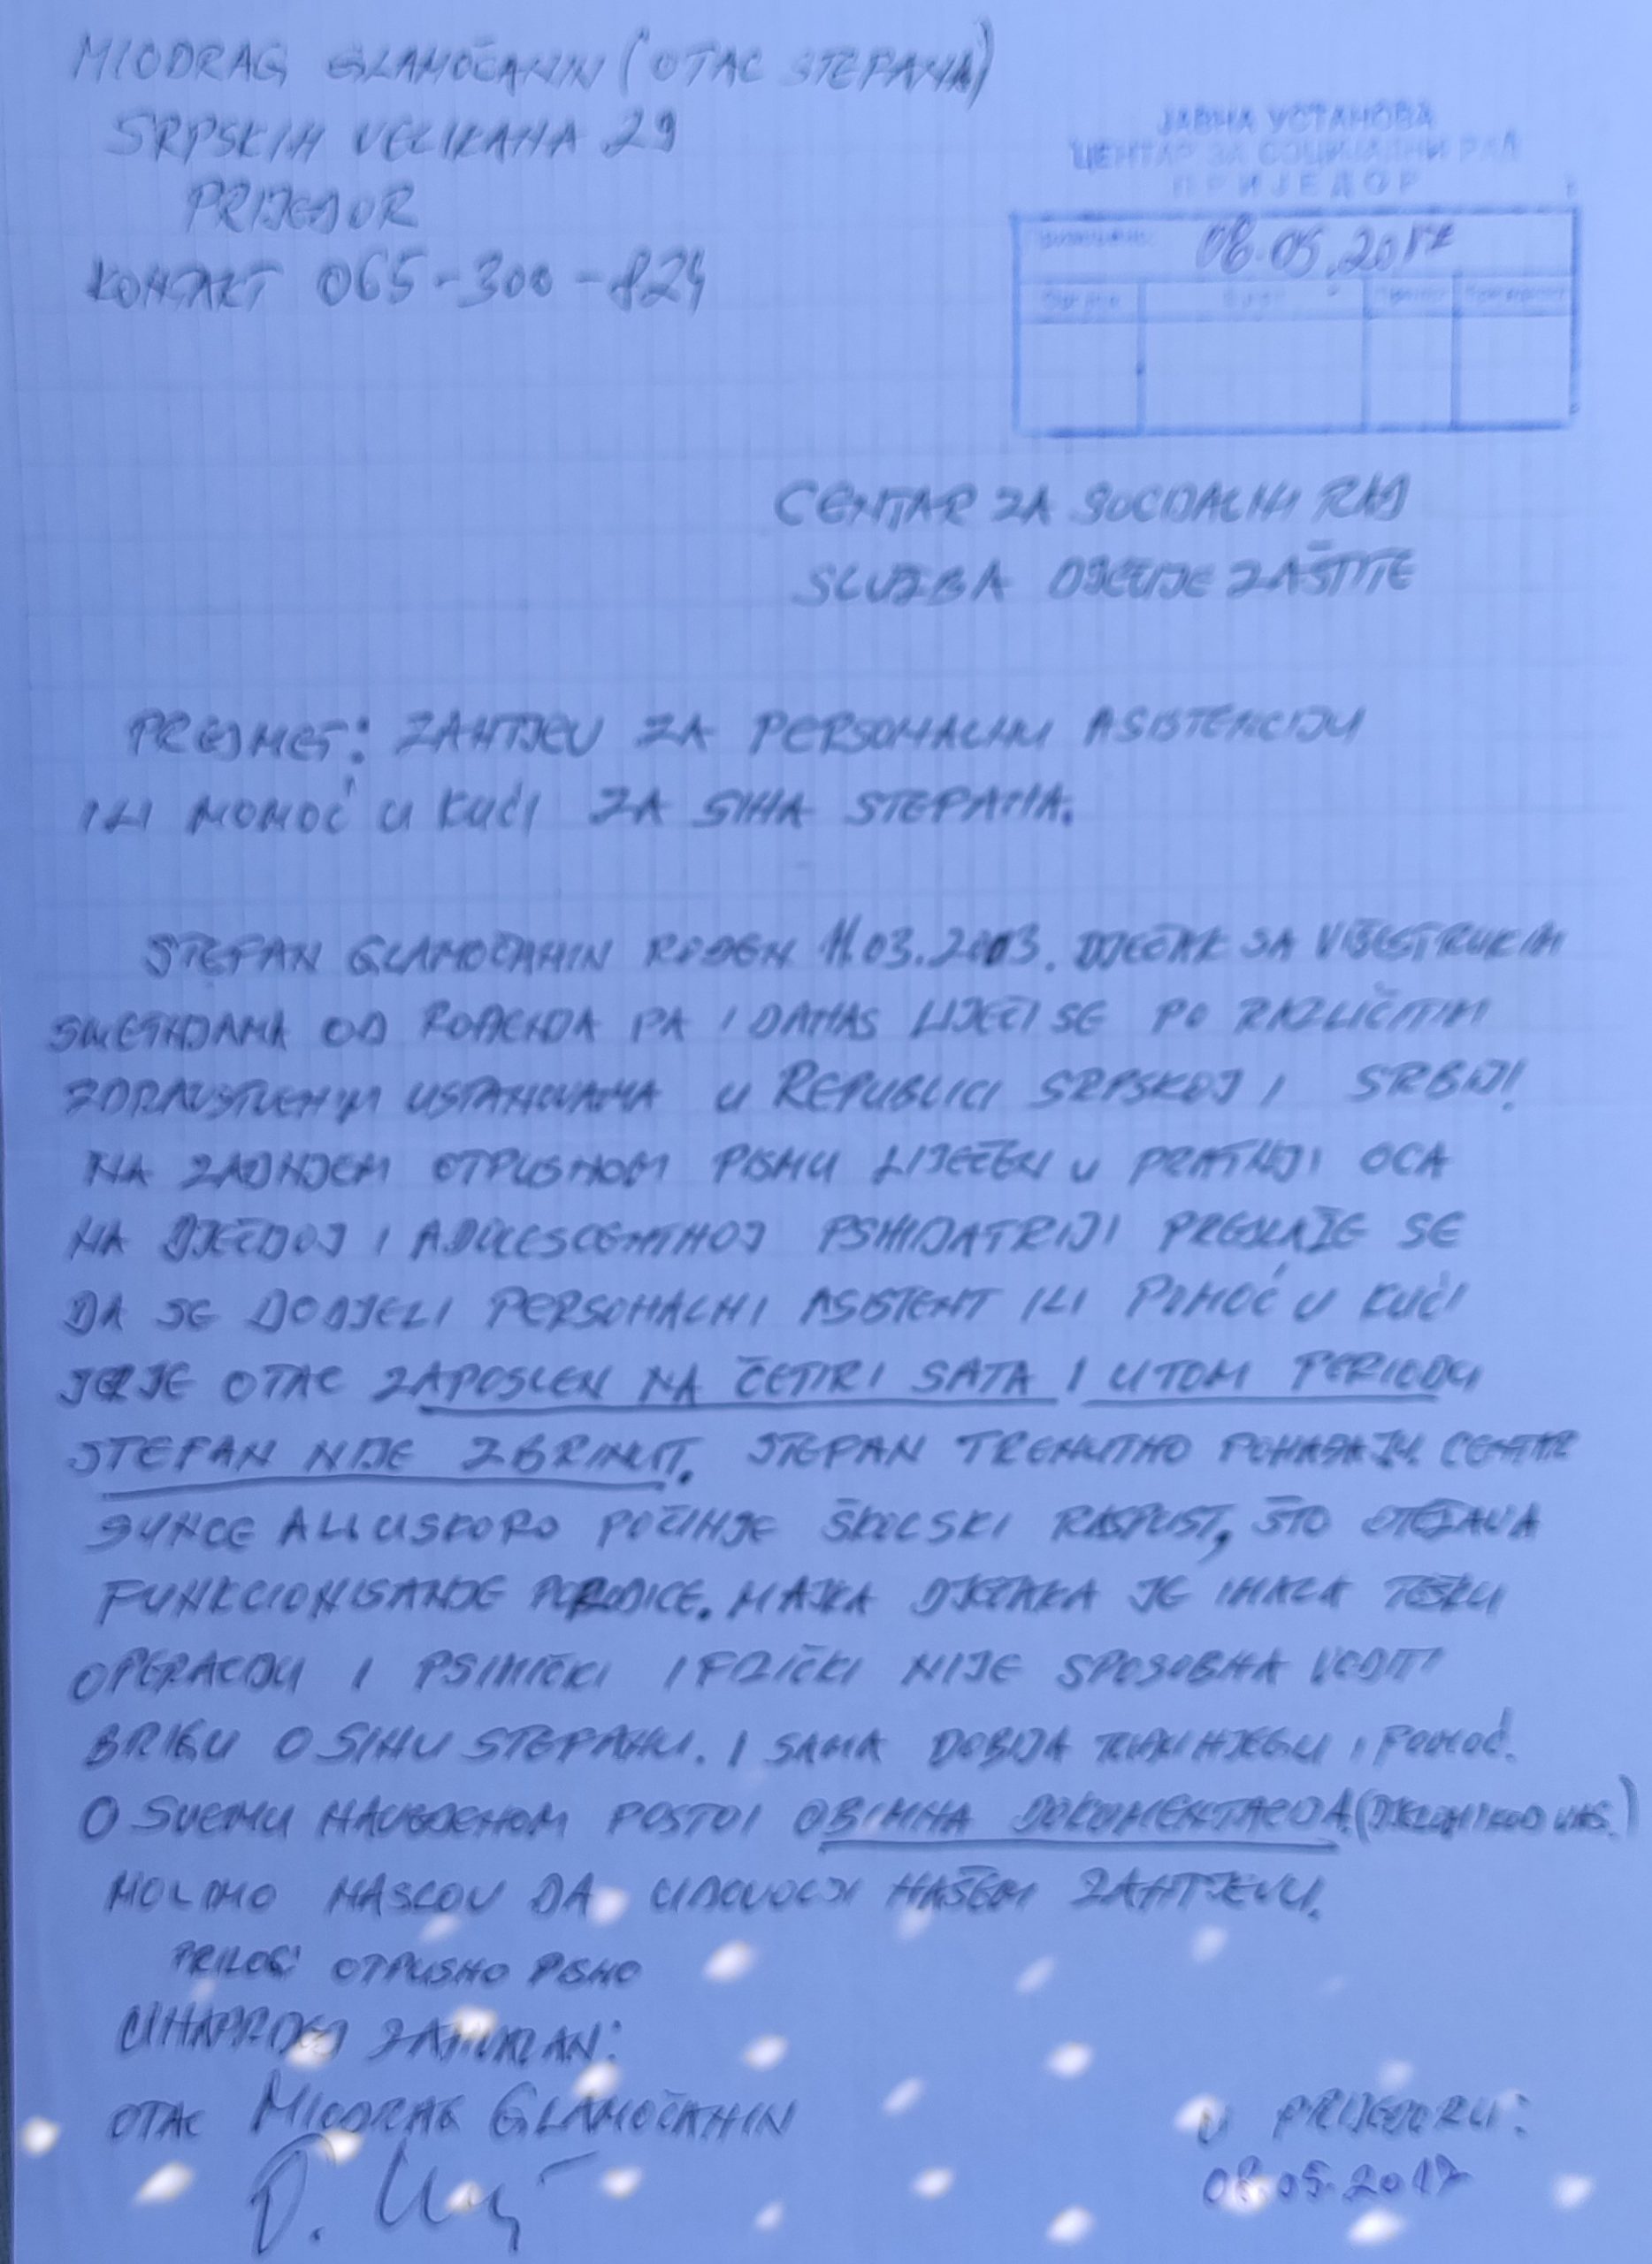 MIODRAG GLAMOČANIN (OTAC STEFANA)
SRPSKIH VELIKANA 29
PRIJEDOR
KONTAKT 065-300-824
ЈАВНА УСТАНОВА
ЦЕНТАР ЗА СОЦИЈАЛНИ РАД
ПРИЈЕДОР
08.05.2017
CENTAR ZA SOCIJALNI RAD
SLUŽBA DJEČIJE ZAŠTITE
PREDMET: ZAHTJEV ZA PERSONALNU ASISTENCIJU
ILI MOMOĆ U KUĆI ZA SINA STEFANA.
STEFAN GLAMOČANIN ROĐEN 11.03.2003. DJEČAK SA VIŠESTRUKIM
SMETNJAMA OD ROĐENJA PA I DANAS LIJEČI SE PO RAZLIČITIM
ZDRAVSTVENIM USTANOVAMA U REPUBLICI SRPSKOJ I SRBIJI.
NA ZADNJEM OTPUSNOM PISMU LIJEČEN U PRATNJI OCA
NA DJEČIJOJ I ADOLESCENTNOJ PSIHIJATRIJI PREDLAŽE SE
DA SE DODJELI PERSONALNI ASISTENT ILI POMOĆ U KUĆI
JER JE OTAC ZAPOSLEN NA ČETIRI SATA I U TOM PERIODU
STEFAN NIJE ZBRINUT. STEFAN TRENUTNO POHAĐA J.U. CENTAR
SUNCE ALI USKORO POČINJE ŠKOLSKI RASPUST, ŠTO OTEŽAVA
FUNKCIONISANJE PORODICE. MAJKA DJEČAKA JE IMALA TEŠKU
OPERACIJU I PSIHIČKI I FIZIČKI NIJE SPOSOBNA VODITI
BRIGU O SINU STEFANU. I SAMA DOBIJA TUĐU NJEGU I POMOĆ.
O SVEMU NAVEDENOM POSTOI OBIMNA DOKUMENTACIJA. (DJELOM I KOD VAS.)
MOLIMO NASLOV DA UDOVOLJI NAŠEM ZAHTJEVU.
PRILOG: OTPUSNO PISMO
UNAPRIJED ZAHVALAN:
OTAC MIODRAG GLAMOČANIN
U PRIJEDORU:
08.05.2017